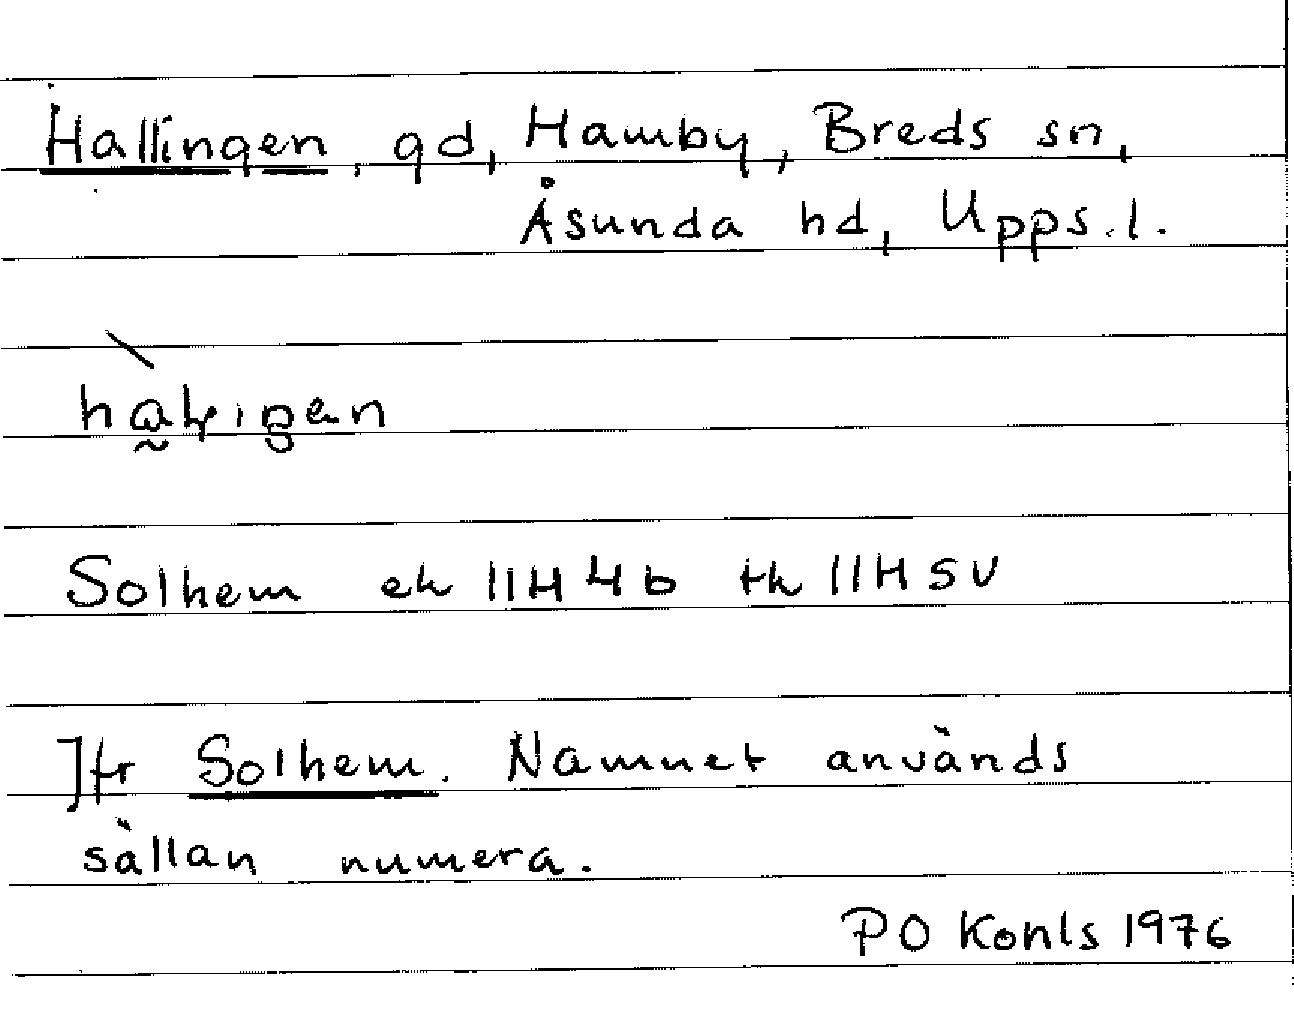 Hallingen, gd, Hamby, Breds sn,
Åsunda hd, Upps. l.
Solhem ek 11H 4b tk 11H SV
Jfr Solhem. Namnet används
sällan numera.
PO Konls 1976